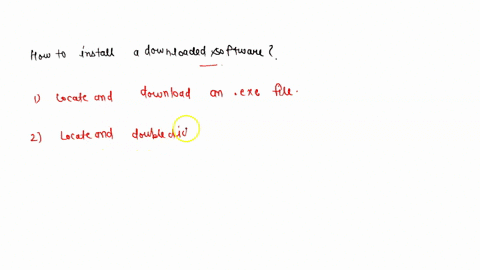 How to install a downloaded software?
1) Locate and download an .exe file.
2) Locate and double clic